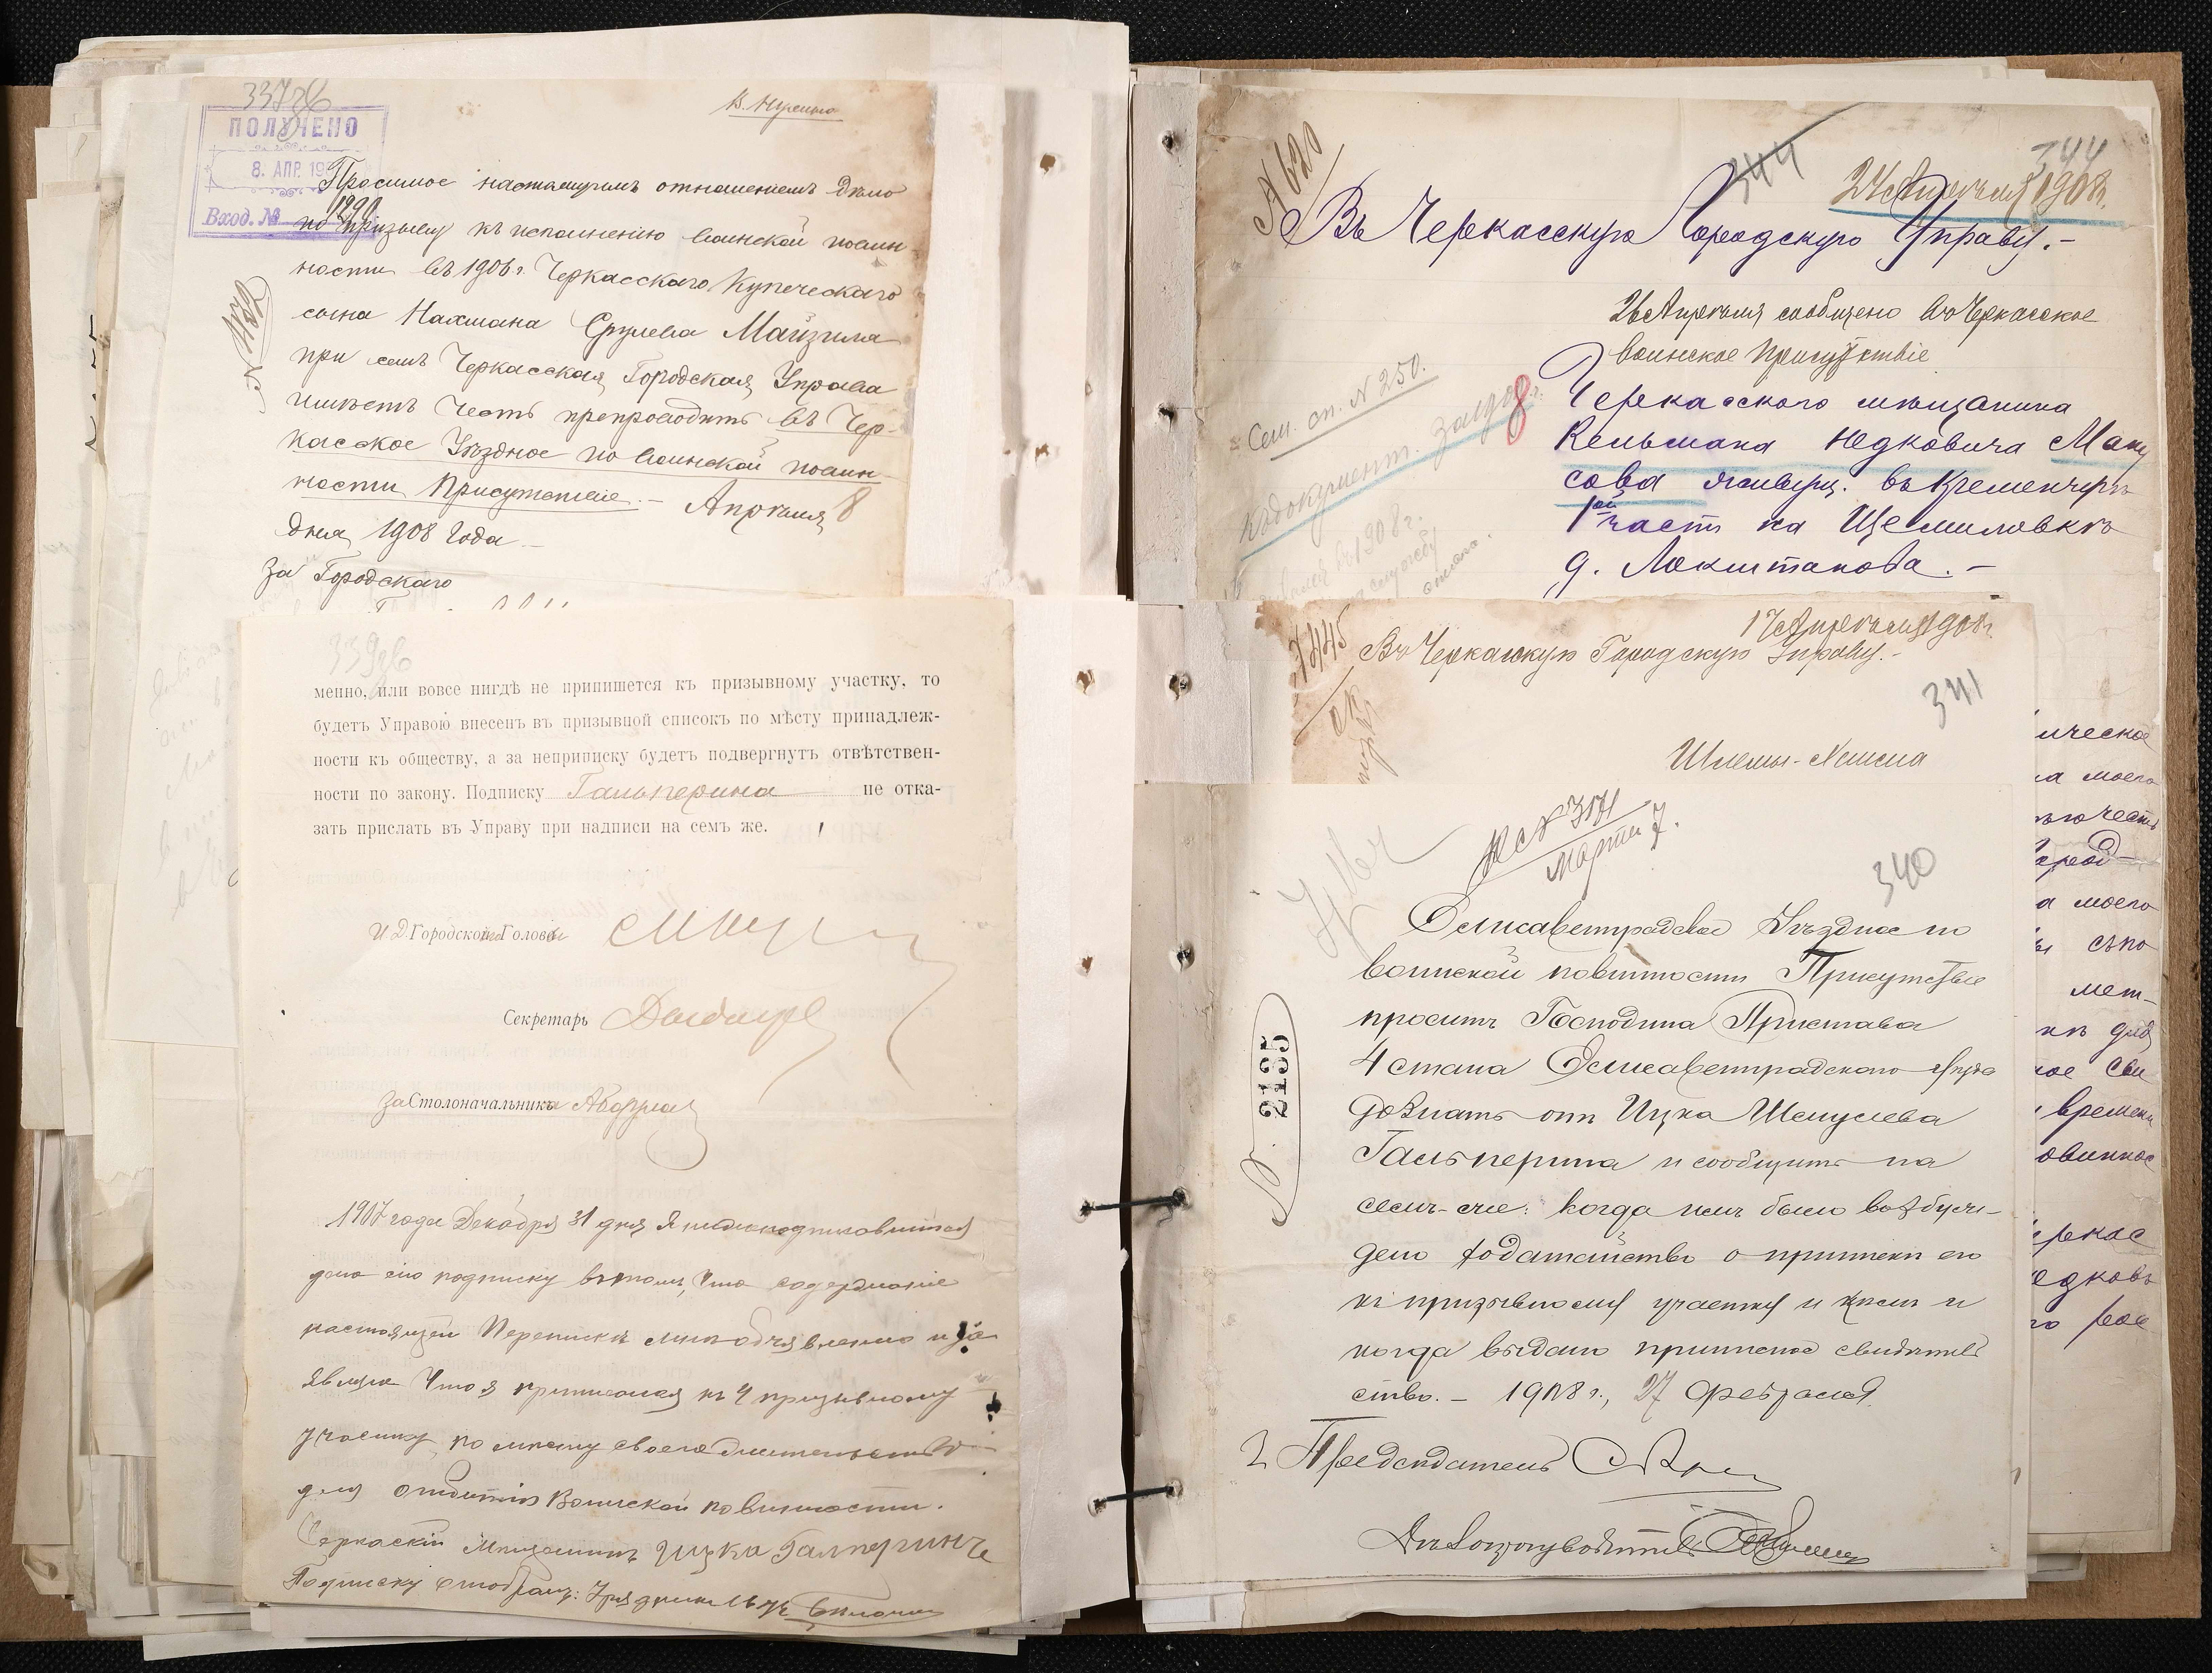 337об
В. Нужно
ПОЛУЧЕНО
8. АПР. 190
Вход. № 1290
№ 4582
Просимое настоящимъ отношеніемъ дѣло
по призыву къ исполненію воинской повин-
ности въ 1906 г. Черкасскаго Купеческаго
сына Нахмана Срулева Майзиля
при семъ Черкасская Городская Управа
имѣетъ честь препроводить въ Чер-
касское Уѣздное по воинской повин-
ности Присутствіе. – Апрѣля 8
дня 1908 года –
За Городского
339об
менно, или вовсе нигдѣ не припишется къ призывному участку, то
будетъ Управою внесенъ въ призывной списокъ по мѣсту принадлеж-
ности къ обществу, а за неприписку будетъ подвергнутъ отвѣтствен-
ности по закону. Подписку Гальперина не отка-
зать прислать въ Управу при надписи на семъ же.
И.Д. Городского Головы
Секретарь
За Столоначальника
1907 года Декабря 31 дня Я нижеподписавшійся
далъ сію подписку въ томъ, что содержаніе
настоящей Переписки мнѣ объявлено и за
являю что я приписался къ 4 призывному
участку по мѣсту своего жительства
для отбытія Воинской повинности.
Черкаскій Мѣщанинъ Ицка Галперинъ
Подписку отобралъ: Урядникъ
№ 620
344
344
24 Апрѣля 1908 г.
Въ Черкасскую Городскую Управу. –
26 Апрѣля сообщено въ Черкасское
воинское Присутствіе
Сем. сп. N 250.
8
Черкасского мѣщанина
Кельмана Недковича Ману
сова живущ. въ Кременчугѣ
1ой часть на Щемиловкѣ
д. Локшанова. –
въ 1908 г.
17 Апрѣля 1908 г.
Въ Черкасскую Городскую Управу. –
341
Шлемы-Хаима
ическое
а моего
ю честь
Город-
а моего
съпо
мет-
времени
овиннос
еркас
едковъ
№ 374
Марта 7.
340
№ 2135
Елисаветградское Уѣздное по
воинской повинности Присутствіе
проситъ Господина Пристава
4 стана Елисаветградскаго уѣзда
дознать отъ Ицка Шмулева
Гальперина и сообщить на
семъ-же: когда имъ было возбуж-
дено ходатайство о припискѣ его
къ призывному участку и кѣмъ и
когда выдано приписное свидѣтель
ство. – 1908 г., 27 Февраля
Предсѣдатель
Дѣлопроизводитель